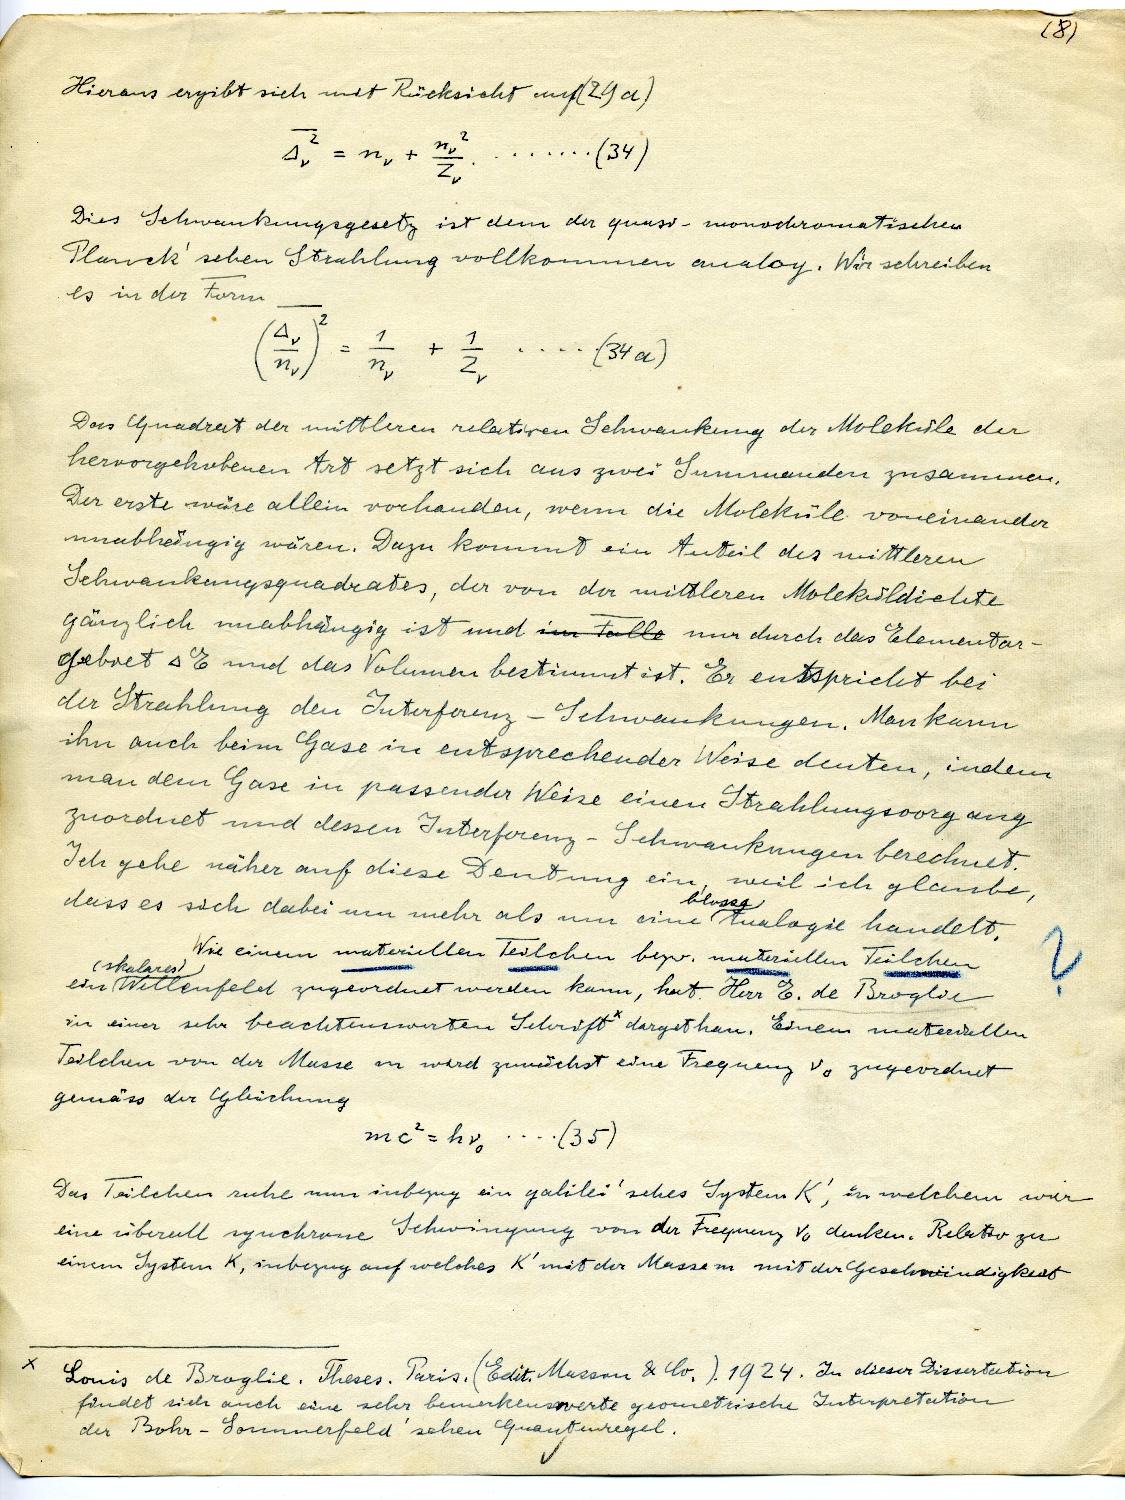 (8)
Hieraus ergibt sich mit Rücksicht auf (29a)
Δ̅ᵥ² = nᵥ + nᵥ²/Zᵥ . ....... (34)
Dies Schwankungsgesetz ist dem der quasi-monochromatischen
Planck'schen Strahlung vollkommen analog. Wir schreiben
es in der Form
(Δᵥ/nᵥ)² = 1/nᵥ + 1/Zᵥ ..... (34a)
Das Quadrat der mittleren relativen Schwankung der Moleküle der
hervorgehobenen Art setzt sich aus zwei Summanden zusammen.
Der erste wäre allein vorhanden, wenn die Moleküle voneinander
unabhängig wären. Dazu kommt ein Anteil des mittleren
Schwankungsquadrates, der von der mittleren Moleküldichte
gänzlich unabhängig ist und im Falle nur durch das Elementar-
gebiet ΔE und das Volumen bestimmt ist. Er entspricht bei
der Strahlung den Interferenz-Schwankungen. Man kann
ihn auch beim Gase in entsprechender Weise deuten, indem
man dem Gase in passender Weise einen Strahlungsvorgang
zuordnet und dessen Interferenz-Schwankungen berechnet.
Ich gehe näher auf diese Deutung ein, weil ich glaube,
dass es sich dabei um mehr als um eine blosse Analogie handelt.
Wie einem materiellen Teilchen bezw. materiellen Teilchen ?
ein (skalares) Wellenfeld zugeordnet werden kann, hat Herr E. de Broglie
in einer sehr beachtenswerten Schrift x dargethan. Einem materiellen
Teilchen von der Masse m wird zunächst eine Frequenz ν₀ zugeordnet
gemäss der Gleichung
mc² = hν₀ ....(35)
Das Teilchen ruhe nun inbezug ein galilei'sches System K', in welchem wir
eine überall synchrone Schwingung von der Frequenz ν₀ denken. Relativ zu
einem System K, inbezug auf welches K' mit der Masse m mit der Geschwindigkeit
x Louis de Broglie. Theses. Paris. (Edit. Musson & Co.). 1924. In dieser Dissertation
findet sich auch eine sehr bemerkenswerte geometrische Interpretation
der Bohr-Sommerfeld'schen Quantenregel.